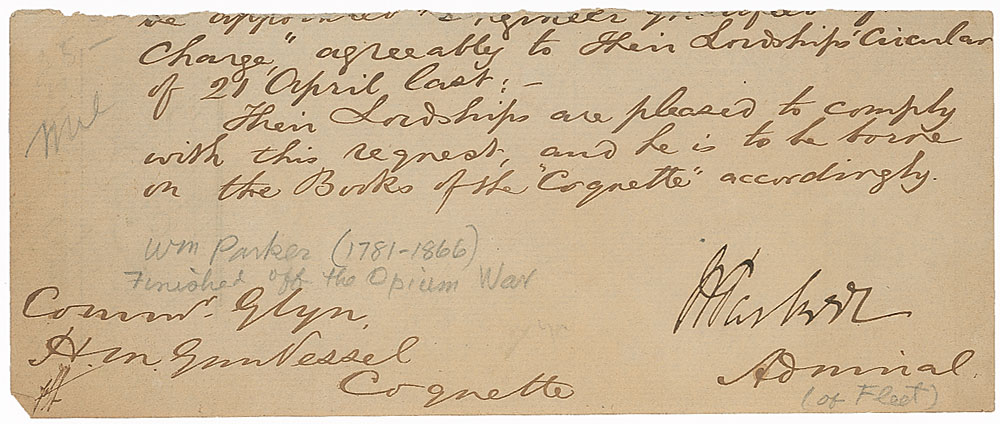 be appointed "Engineer qualified for
Charge," agreeably to Their Lordships' Circular
of 21 April last: -
Their Lordships are pleased to comply
with this request, and he is to be borne
on the Books of the "Coquette" accordingly.
Wm Parker (1781-1866)
Finished off the Opium War
WParker
Commr. Glyn,
H.M. Gun Vessel
Coquette
Admiral
(of Fleet)